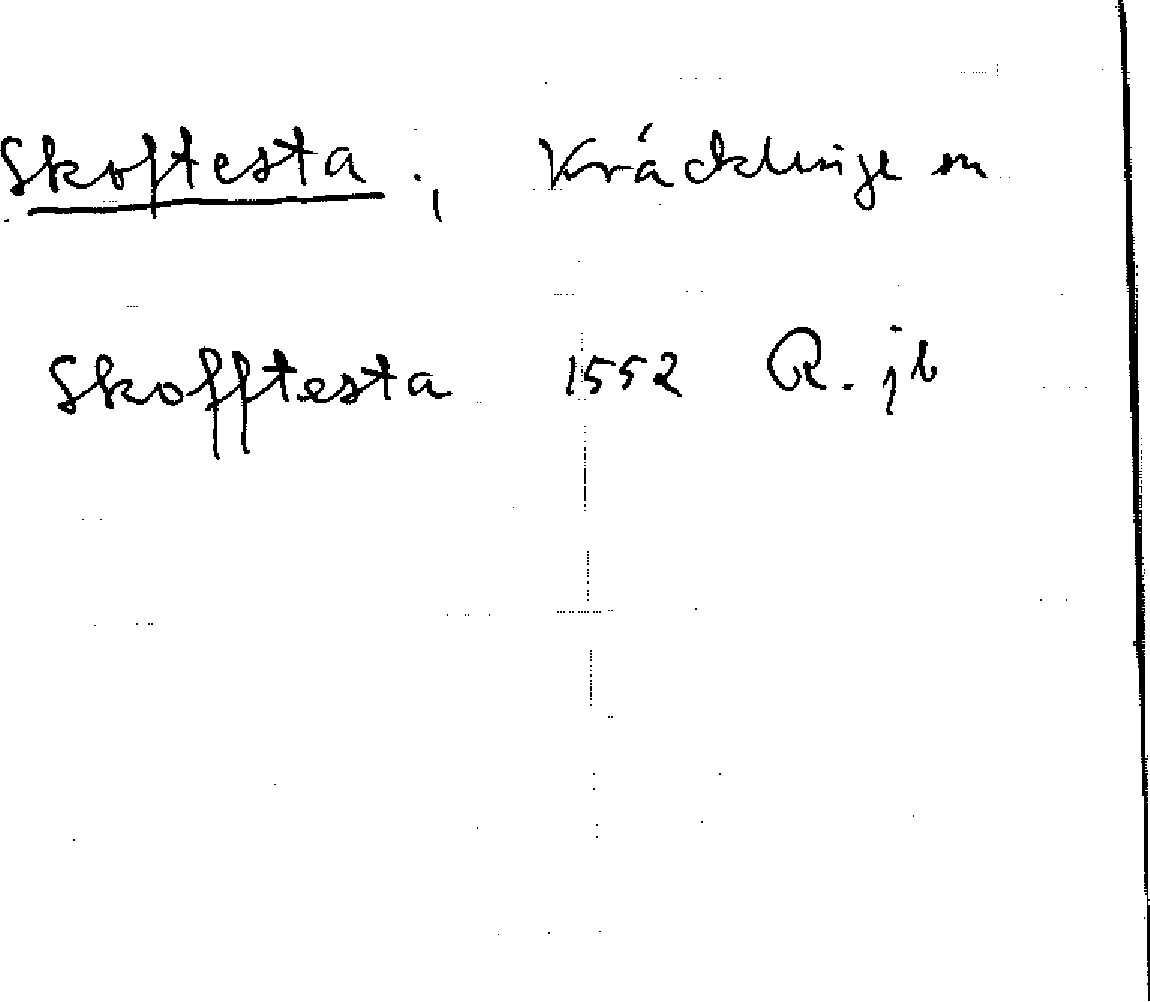 Skoftesta ., Kräcklinge sn
Skofftesta 1552 R. jb